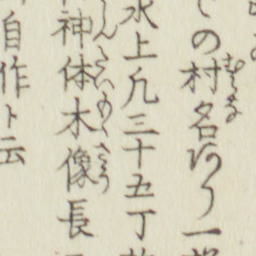 の村名あり一
水上凡三十五丁
神体木像長
自作ト云